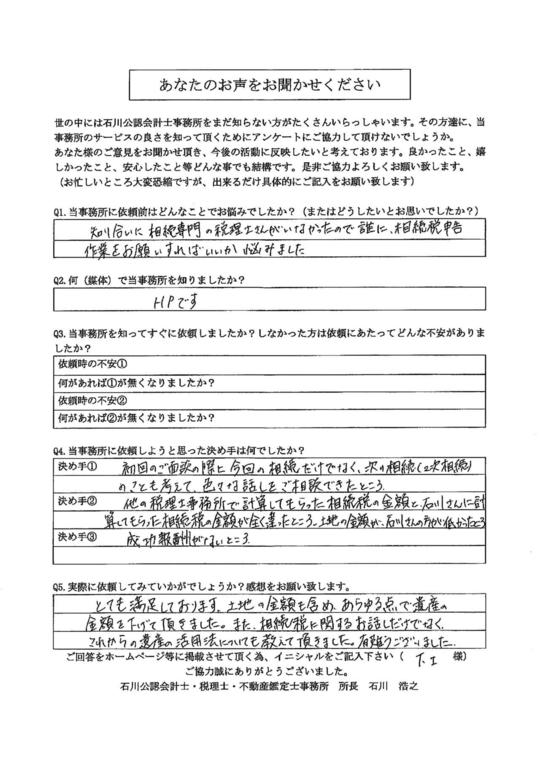 あなたのお声をお聞かせください
世の中には石川公認会計士事務所をまだ知らない方がたくさんいらっしゃいます。その方達に、当
事務所のサービスの良さを知って頂くためにアンケートにご協力して頂けないでしょうか。
あなた様のご意見をお聞かせ頂き、今後の活動に反映したいと考えております。良かったこと、嬉
しかったこと、安心したこと等どんな事でも結構です。是非ご協力よろしくお願い致します。
（お忙しいところ大変恐縮ですが、出来るだけ具体的にご記入をお願い致します）
Q1.当事務所に依頼前はどんなことでお悩みでしたか？（またはどうしたいとお思いでしたか？）
知り合いに相続専門の税理士さんがいなかったので誰に、相続税申告
作業をお願いすればいいか悩みました
Q2.何（媒体）で当事務所を知りましたか？
HPです
Q3.当事務所を知ってすぐに依頼しましたか？しなかった方は依頼にあたってどんな不安がありま
したか？
依頼時の不安①
何があれば①が無くなりましたか？
依頼時の不安②
何があれば②が無くなりましたか？
Q4.当事務所に依頼しようと思った決め手は何でしたか？
決め手① 初回のご面談の際に今回の相続だけでなく、次の相続（2次相続）
のことも考えて、色々な話しをご相談できたところ
決め手② 他の税理士事務所で計算してもらった相続税の金額と、石川さんに計
算してもらった相続税の金額が全く違ったところ。土地の金額が、石川さんの方が低かったところ
決め手③ 成功報酬がないところ
Q5.実際に依頼してみていかがでしょうか？感想をお願い致します。
とても満足しております。土地の金額も含め、あらゆる点で遺産の
金額を下げて頂きました。また、相続税に関するお話しだけでなく、
これからの遺産の活用法についても教えて頂きました。有難うございました。
ご回答をホームページ等に掲載させて頂く為、イニシャルをご記入下さい（ T.I 様）
ご協力誠にありがとうございました。
石川公認会計士・税理士・不動産鑑定士事務所 所長 石川 浩之